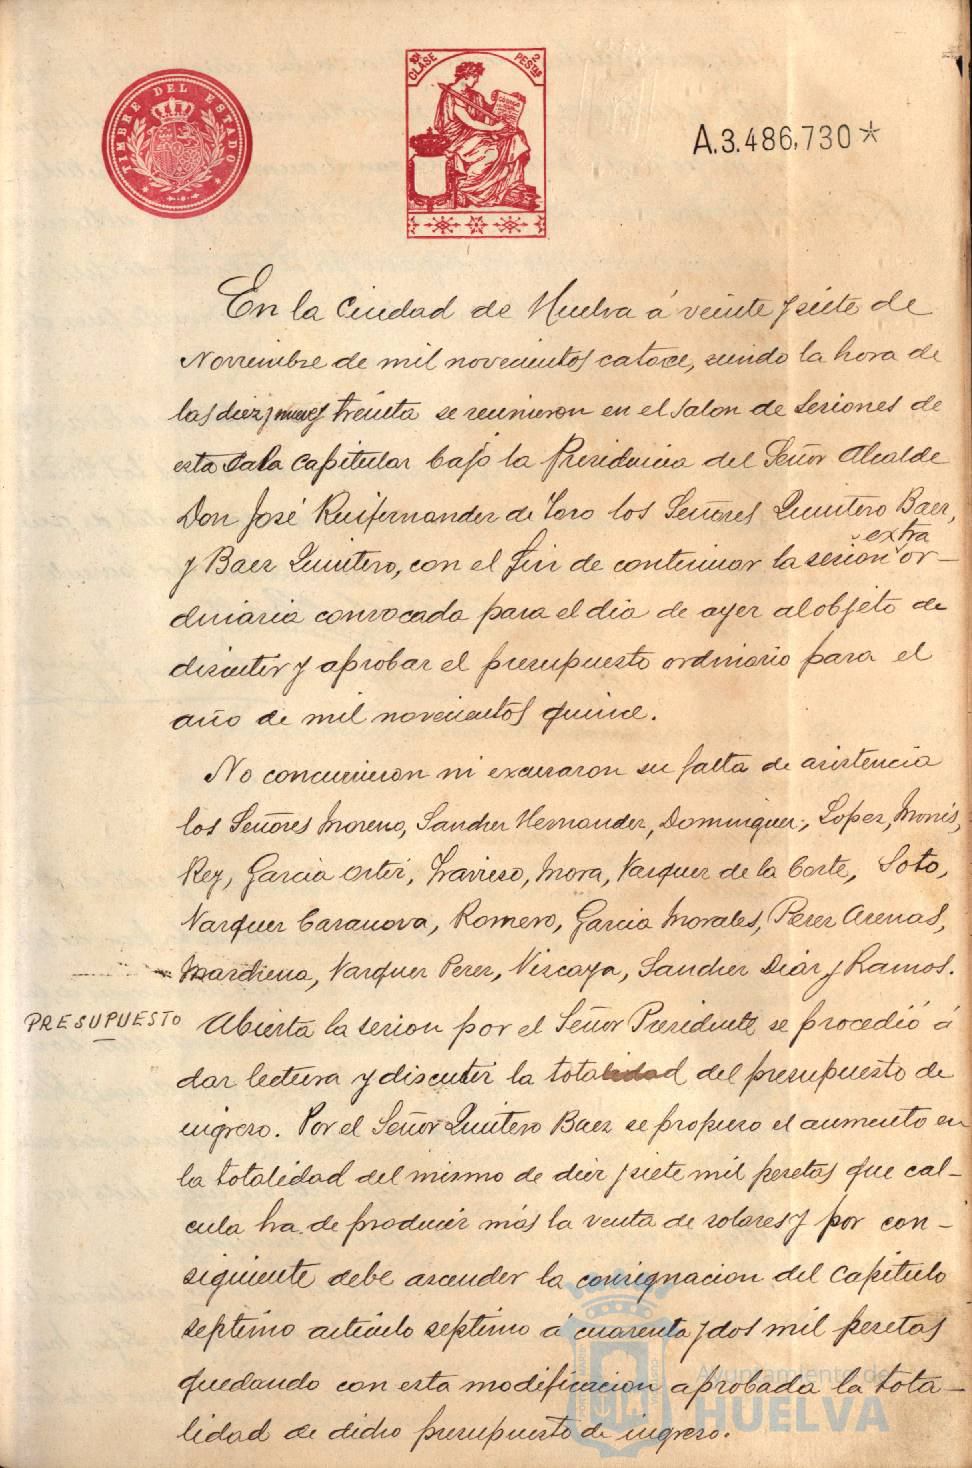 TIMBRE DEL ESTADO
CLASE 2 PESTAS
A.3.486,730*
En la Ciudad de Huelva á veinte y siete de
Noviembre de mil novecientos catoce, siendo la hora de
las diez y nueve y treinta se reunieron en el salon de sesiones de
esta Sala Capitular bajo la Presidencia del Señor Alcalde
Don José Ruifernandez de Toro los Señores Quintero Baez,
y Baez Quintero, con el fin de continuar la sesion extra or-
dinaria convocada para el dia de ayer al objeto de
discutir y aprobar el presupuesto ordinario para el
año de mil novecientos quince.
No concurrieron ni excusaron su falta de asistencia
los Señores Moreno, Sanchez Hernandez, Dominguez, Lopez, Monis,
Rey, Garcia Ortiz, Travieso, Mora, Vazquez de la Corte, Soto,
Vazquez Casanova, Romero, Garcia Morales, Perez Arenas,
Marchena, Vazquez Perez, Viscaya, Sanchez Diaz y Ramos.
PRESUPUESTO
Abierta la sesion por el Señor Presidente se procedió á
dar lectura y discutir la totalidad del presupuesto de
ingreso. Por el Señor Quintero Baez se propuso el aumento en
la totalidad del mismo de diez y siete mil pesetas que cal-
cula ha de producir más la venta de solares y por con-
siguiente debe ascender la consignacion del Capitulo
septimo articulo septimo á cuarenta y dos mil pesetas
quedando con esta modificacion aprobada la tota-
lidad de dicho presupuesto de ingreso.
Ayuntamiento de
HUELVA